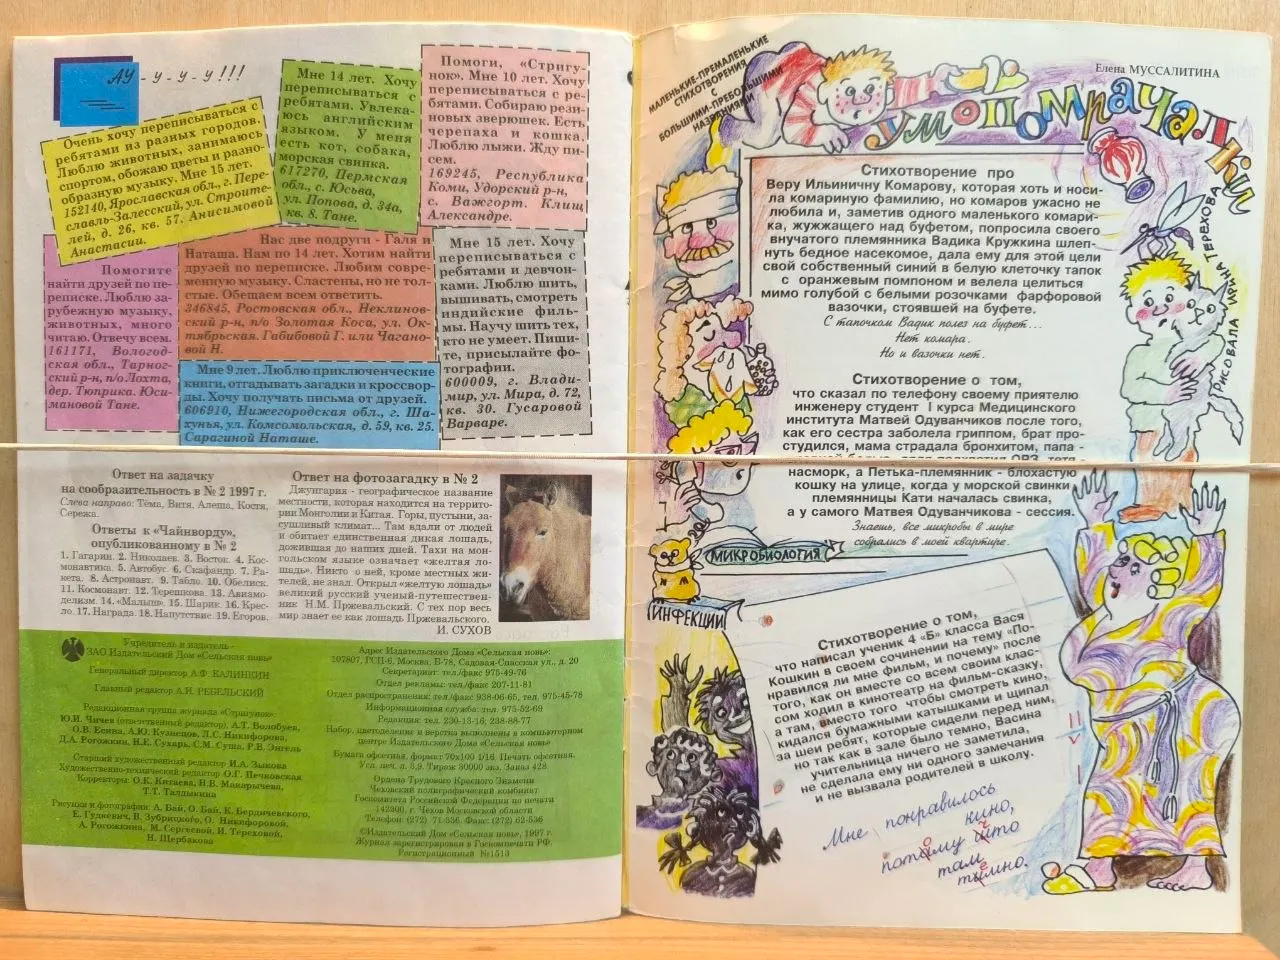 АУ - У - У - У !!!
Очень хочу переписываться с
ребятами из разных городов.
Люблю животных, занимаюсь
спортом, обожаю цветы и разно-
образную музыку. Мне 15 лет.
152140, Ярославская обл., г. Пере-
славль-Залесский, ул. Строите-
лей, д. 26, кв. 57. Анисимовой
Анастасии.
Мне 14 лет. Хочу
переписываться с
ребятами. Увлека-
юсь английским
языком. У меня
есть кот, собака,
морская свинка.
617270, Пермская
обл., с. Юсьва,
ул. Попова, д. 34а,
кв. 8. Тане.
Помоги, «Стригу-
нок». Мне 10 лет. Хочу
переписываться с ре-
бятами. Собираю рези-
новых зверюшек. Есть
черепаха и кошка.
Люблю лыжи. Жду пи-
сем.
169245, Республика
Коми, Удорский р-н,
с. Важгорт. Клищ
Александре.
Помогите
найти друзей по пе-
реписке. Люблю за-
рубежную музыку,
животных, много
читаю. Отвечу всем.
161171, Вологод-
ская обл., Тарног-
ский р-н, п/о Лохта,
дер. Тюприха. Юси-
мановой Тане.
Нас две подруги - Галя и
Наташа. Нам по 14 лет. Хотим найти
друзей по переписке. Любим совре-
менную музыку. Сластены, но не тол-
стые. Обещаем всем ответить.
346845, Ростовская обл., Неклинов-
ский р-н, п/о Золотая Коса, ул. Ок-
тябрьская. Габибовой Г. или Чагано-
вой Н.
Мне 15 лет. Хочу
переписываться с
ребятами и девчон-
ками. Люблю шить,
вышивать, смотреть
индийские филь-
мы. Научу шить тех,
кто не умеет. Пиши-
те, присылайте фо-
тографии.
600009, г. Влади-
мир, ул. Мира, д. 72,
кв. 30. Гусаровой
Варваре.
Мне 9 лет. Люблю приключенческие
книги, отгадывать загадки и кроссвор-
ды. Хочу получать письма от друзей.
606910, Нижегородская обл., г. Ша-
хунья, ул. Комсомольская, д. 59, кв. 25.
Сарагиной Наташе.
Ответ на задачку
на сообразительность в № 2 1997 г.
Слева направо: Тёма, Витя, Алеша, Костя,
Сережа.
Ответы к «Чайнворду»,
опубликованному в № 2
1. Гагарин. 2. Николаев. 3. Восток. 4. Кос-
монавтика. 5. Автобус 6. Скафандр. 7. Ра-
кета. 8. Астронавт. 9. Табло. 10. Обелиск.
11. Космонавт. 12. Терешкова. 13. Авиамо-
делизм. 14. «Малыш». 15. Шарик. 16. Крес-
ло. 17. Награда. 18. Напутствие. 19. Егоров.
Ответ на фотозагадку в № 2
Джунгария - географическое название
местности, которая находится на террито-
рии Монголии и Китая. Горы, пустыни, за-
сушливый климат... Там вдали от людей
и обитает единственная дикая лошадь,
дожившая до наших дней. Тахи на мон-
гольском языке означает «желтая ло-
шадь». Никто о ней, кроме местных жи-
телей, не знал. Открыл «желтую лошадь»
великий русский ученый-путешествен-
ник Н.М. Пржевальский. С тех пор весь
мир знает ее как лошадь Пржевальского.
И. СУХОВ
Учредитель и издатель -
ЗАО Издательский Дом «Сельская новь»
Генеральный директор А.Ф. КАЛИНКИН
Главный редактор А.Н. РЕБЕЛЬСКИЙ
Редакционная группа журнала «Стригунок»:
Ю.И. Чичев (ответственный редактор), А.Т. Волобуев,
О.В. Есина, А.Ю. Кузнецов, Л.С. Никифорова,
Д.А. Рогожкин, Н.Е. Сухарь, С.М. Суша, Р.В. Энгель
Старший художественный редактор И.А. Зыкова
Художественно-технический редактор О.Г. Печковская
Корректоры: О.К. Китаева, Н.В. Макарычева,
Т.Т. Талдыкина
Рисунки и фотографии: А. Бай, О. Бай, К. Бердичевского,
Е. Гудкевич, В. Зубрицкого, О. Никифоровой,
А. Рогожкина, М. Сергеевой, И. Тереховой,
Н. Щербакова
Адрес Издательского Дома «Сельская новь»:
107807, ГСП-6, Москва, Б-78, Садовая-Спасская ул., д. 20
Секретариат: тел./факс 975-49-76
Отдел рекламы: тел./факс 207-11-81
Отдел распространения: тел./факс 938-06-65, тел. 975-45-78
Информационная служба: тел. 975-52-69
Редакция: тел. 230-13-16; 238-88-77
Набор, цветоделения и верстка выполнены в компьютерном
центре Издательского Дома «Сельская новь»
Бумага офсетная, формат 70х100 1/16. Печать офсетная.
Усл. печ. л. 3,9. Тираж 30000 экз. Заказ 428
Ордена Трудового Красного Знамени
Чеховский полиграфический комбинат
Госкомитета Российской Федерации по печати
142300, г. Чехов Московской области
Телефон: (272) 71-336. Факс: (272) 62-536
©Издательский Дом «Сельская новь», 1997 г.
Журнал зарегистрирован в Госкомпечати РФ.
Регистрационный №1513
МАЛЕНЬКИЕ-ПРЕМАЛЕНЬКИЕ
СТИХОТВОРЕНИЯ
С
БОЛЬШИМИ-ПРЕБОЛЬШИМИ
НАЗВАНИЯМИ
Елена МУССАЛИТИНА
УМОПОМРАЧАЛКИ
РИСОВАЛА ИННА ТЕРЕХОВА
Стихотворение про
Веру Ильиничну Комарову, которая хоть и носи-
ла комариную фамилию, но комаров ужасно не
любила и, заметив одного маленького комари-
ка, жужжащего над буфетом, попросила своего
внучатого племянника Вадика Кружкина шлеп-
нуть бедное насекомое, дала ему для этой цели
свой собственный синий в белую клеточку тапок
с оранжевым помпоном и велела целиться
мимо голубой с белыми розочками фарфоровой
вазочки, стоявшей на буфете.
С тапочком Вадик полез на буфет...
Нет комара.
Но и вазочки нет.
Стихотворение о том,
что сказал по телефону своему приятелю
инженеру студент I курса Медицинского
института Матвей Одуванчиков после того,
как его сестра заболела гриппом, брат про-
студился, мама страдала бронхитом, папа -
насморк, а Петька-племянник - блохастую
кошку на улице, когда у морской свинки
племянницы Кати началась свинка,
а у самого Матвея Одуванчикова - сессия.
Знаешь, все микробы в мире
собрались в моей квартире.
МИКРОБИОЛОГИЯ
ИНФЕКЦИИ
Стихотворение о том,
что написал ученик 4 «Б» класса Вася
Кошкин в своем сочинении на тему «По-
нравился ли мне фильм, и почему» после
того, как он вместе со всем своим клас-
сом ходил в кинотеатр на фильм-сказку,
а там, вместо того чтобы смотреть кино,
кидался бумажными катышками и щипал
за шеи ребят, которые сидели перед ним,
но так как в зале было темно, Васина
учительница ничего не заметила,
не сделала ему ни одного замечания
и не вызвала родителей в школу.
Мне понравилось
кино,
потаму што
там
тимно.